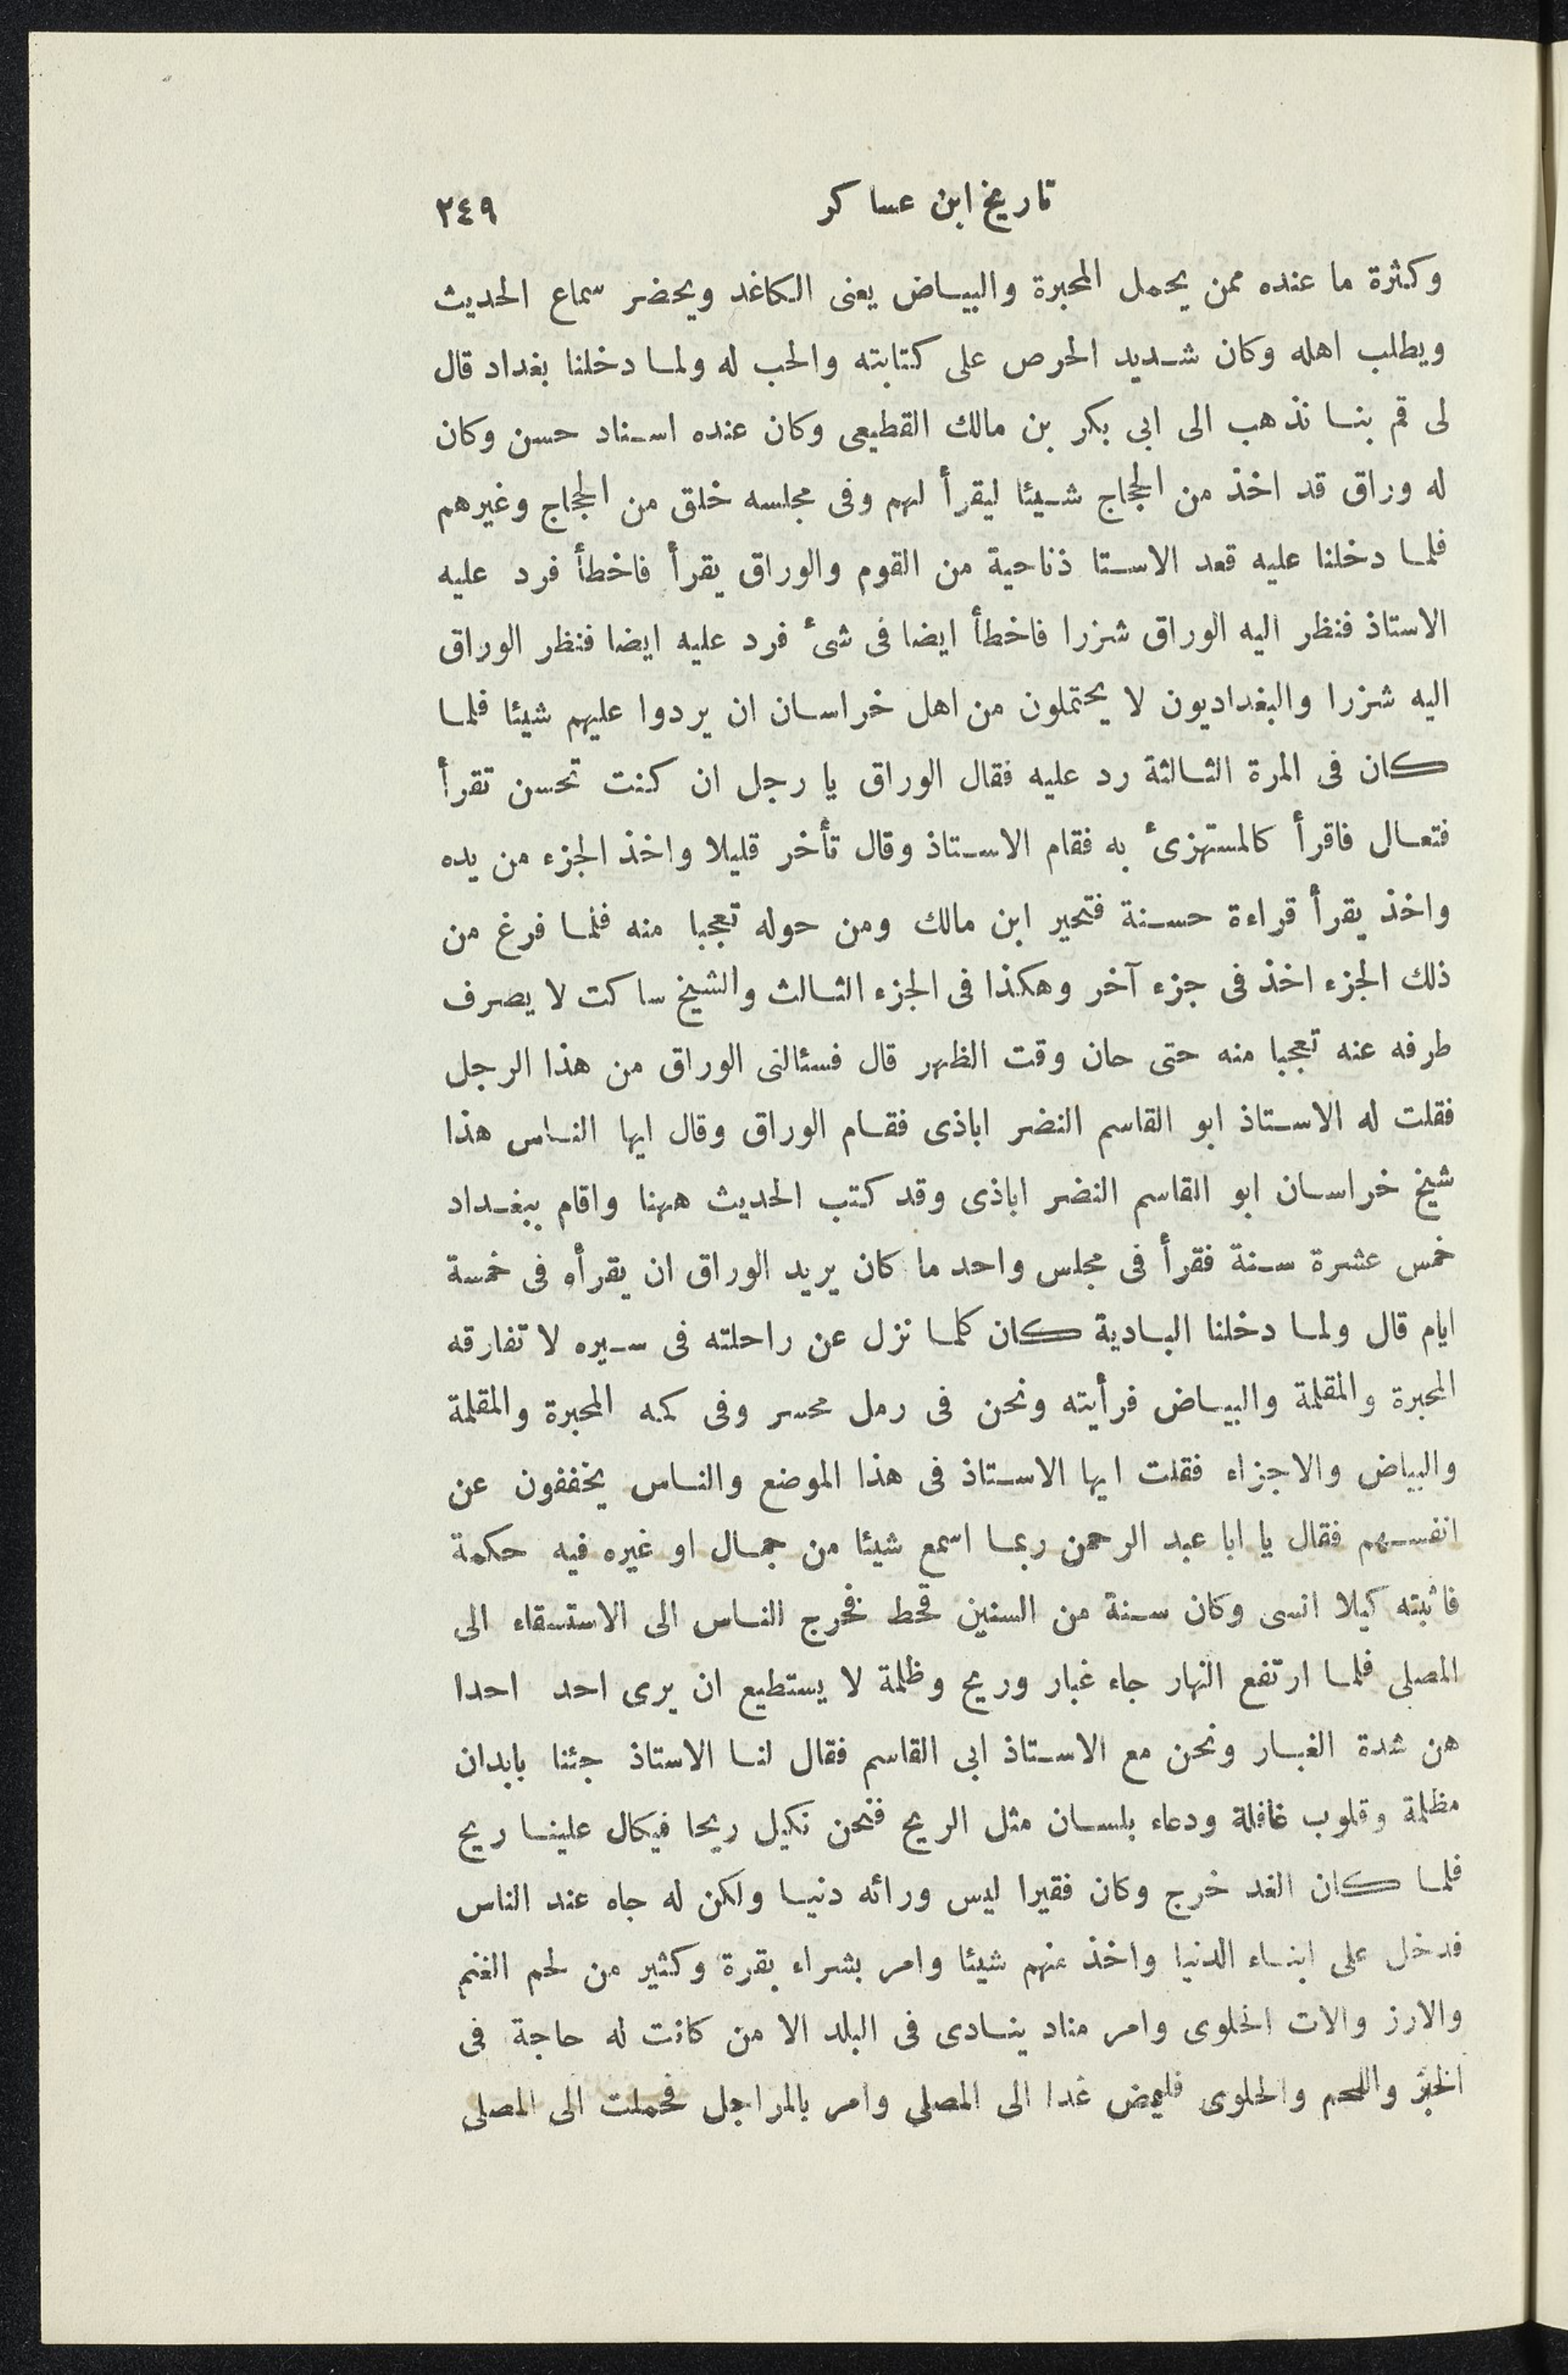 تاريخ ابن عساكر ٢٤٩
وكثرة ما عنده ممن يحمل المحبرة والبياض يعنى الكاغد ويحضر سماع الحديث
ويطلب اهله وكان شديد الحرص على كتابته والحب له ولما دخلنا بغداد قال
لى قم بنا نذهب الى ابى بكر بن مالك القطيعى وكان عنده اسناد حسن وكان
له وراق قد اخذ من الحجاج شيئا ليقرأ لهم وفى مجلسه خلق من الحجاج وغيرهم
فلما دخلنا عليه قعد الاستا ذناحية من القوم والوراق يقرأ فاخطأ فرد عليه
الاستاذ فنظر اليه الوراق شزرا فاخطأ ايضا فى شىء فرد عليه ايضا فنظر الوراق
اليه شزرا والبغداديون لا يحتملون من اهل خراسان ان يردوا عليهم شيئا فلما
كان فى المرة الثالثة رد عليه فقال الوراق يا رجل ان كنت تحسن تقرأ
فتعال فاقرأ كالمستهزىء به فقام الاستاذ وقال تأخر قليلا واخذ الجزء من يده
واخذ يقرأ قراءة حسنة فتحير ابن مالك ومن حوله تعجبا منه فلما فرغ من
ذلك الجزء اخذ فى جزء آخر وهكذا فى الجزء الثالث والشيخ ساكت لا يصرف
طرفه عنه تعجبا منه حتى حان وقت الظهر قال فسئالنى الوراق من هذا الرجل
فقلت له الاستاذ ابو القاسم النضر اباذى فقام الوراق وقال ايها الناس هذا
شيخ خراسان ابو القاسم النضر اباذى وقد كتب الحديث ههنا واقام ببغداد
خمس عشرة سنة فقرأ فى مجلس واحد ما كان يريد الوراق ان يقرأه فى خمسة
ايام قال ولما دخلنا البادية كان كلما نزل عن راحلته فى سيره لا تفارقه
المحبرة والمقلمة والبياض فرأيته ونحن فى رمل محسر وفى كمه المحبرة والمقلمة
والبياض والاجزاء فقلت ايها الاستاذ فى هذا الموضع والناس يخففون عن
انفسهم فقال يا ابا عبد الرحمن ربما اسمع شيئا من جمال او غيره فيه حكمة
فاثبته كيلا انسى وكان سنة من السنين قحط فخرج الناس الى الاستسقاء الى
المصلى فلما ارتفع النهار جاء غبار وريح وظلمة لا يستطيع ان يرى احد احدا
هن شدة الغبار ونحن مع الاستاذ ابى القاسم فقال لنا الاستاذ جئنا بابدان
مظلمة وقلوب غافلة ودعاء بلسان مثل الريح فنحن نكيل ريحا فيكال علينا ريح
فلما كان الغد خرج وكان فقيرا ليس ورائه دنيا ولكن له جاه عند الناس
فدخل على ابناء الدنيا واخذ منهم شيئا وامر بشراء بقرة وكثير من لحم الغنم
والارز والات الحلوى وامر مناد ينادى فى البلد الا من كانت له حاجة فى
الخبز واللحم والحلوى فليمض غدا الى المصلى وامر بالمراجل فحملت الى المصلى